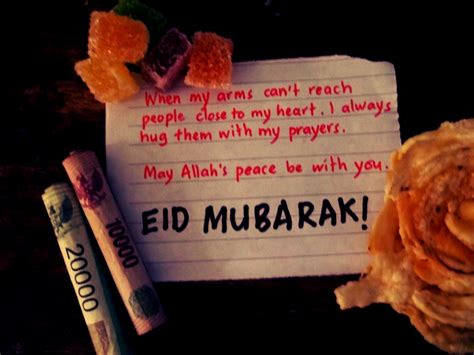 When my arms can't reach
people close to my heart. I always
hug them with my prayers.
May Allah's peace be with you.
EID MUBARAK!
10000
20000